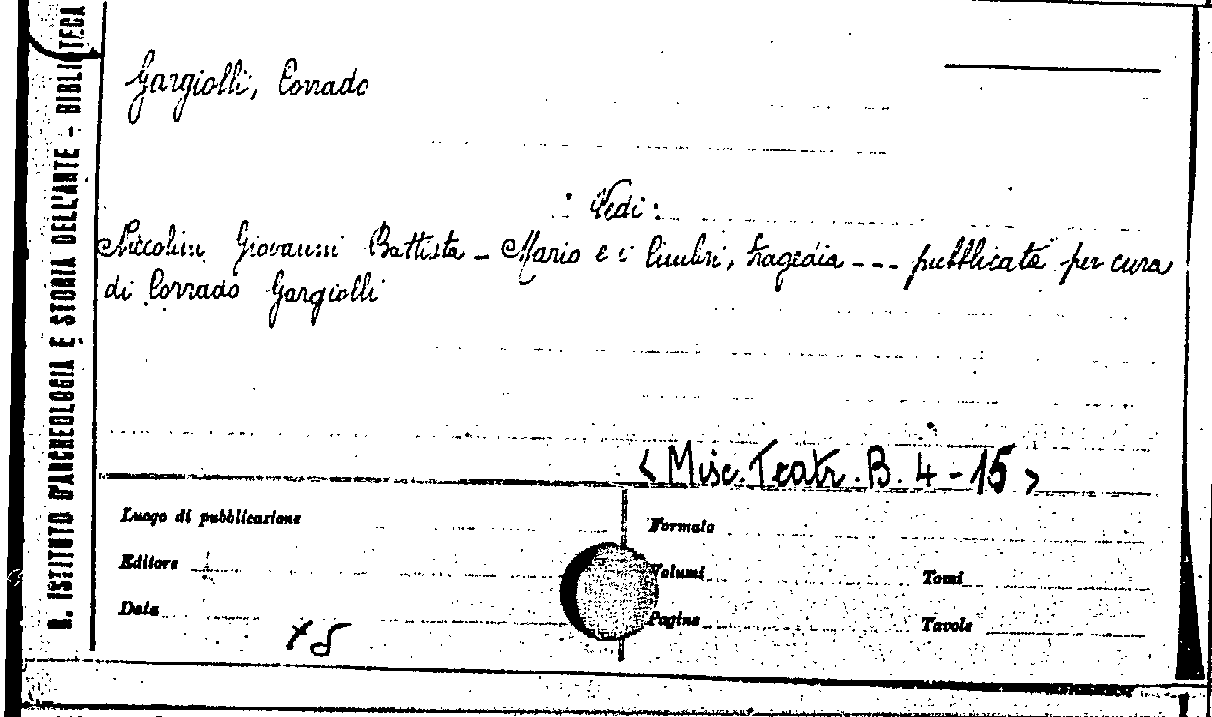 R. ISTITUTO D'ARCHEOLOGIA E STORIA DELL'ARTE - BIBLIOTECA
Gargiolli, Corrado
Vedi:
Niccolini Giovanni Battista - Mario e i Cimbri, tragedia --- pubblicata per cura
di Corrado Gargiolli
< Misc. Teatr. B. 4 - 15 >
Luogo di pubblicazione
Formato
Editore
Volumi
Tomi
Data
Pagine
Tavole